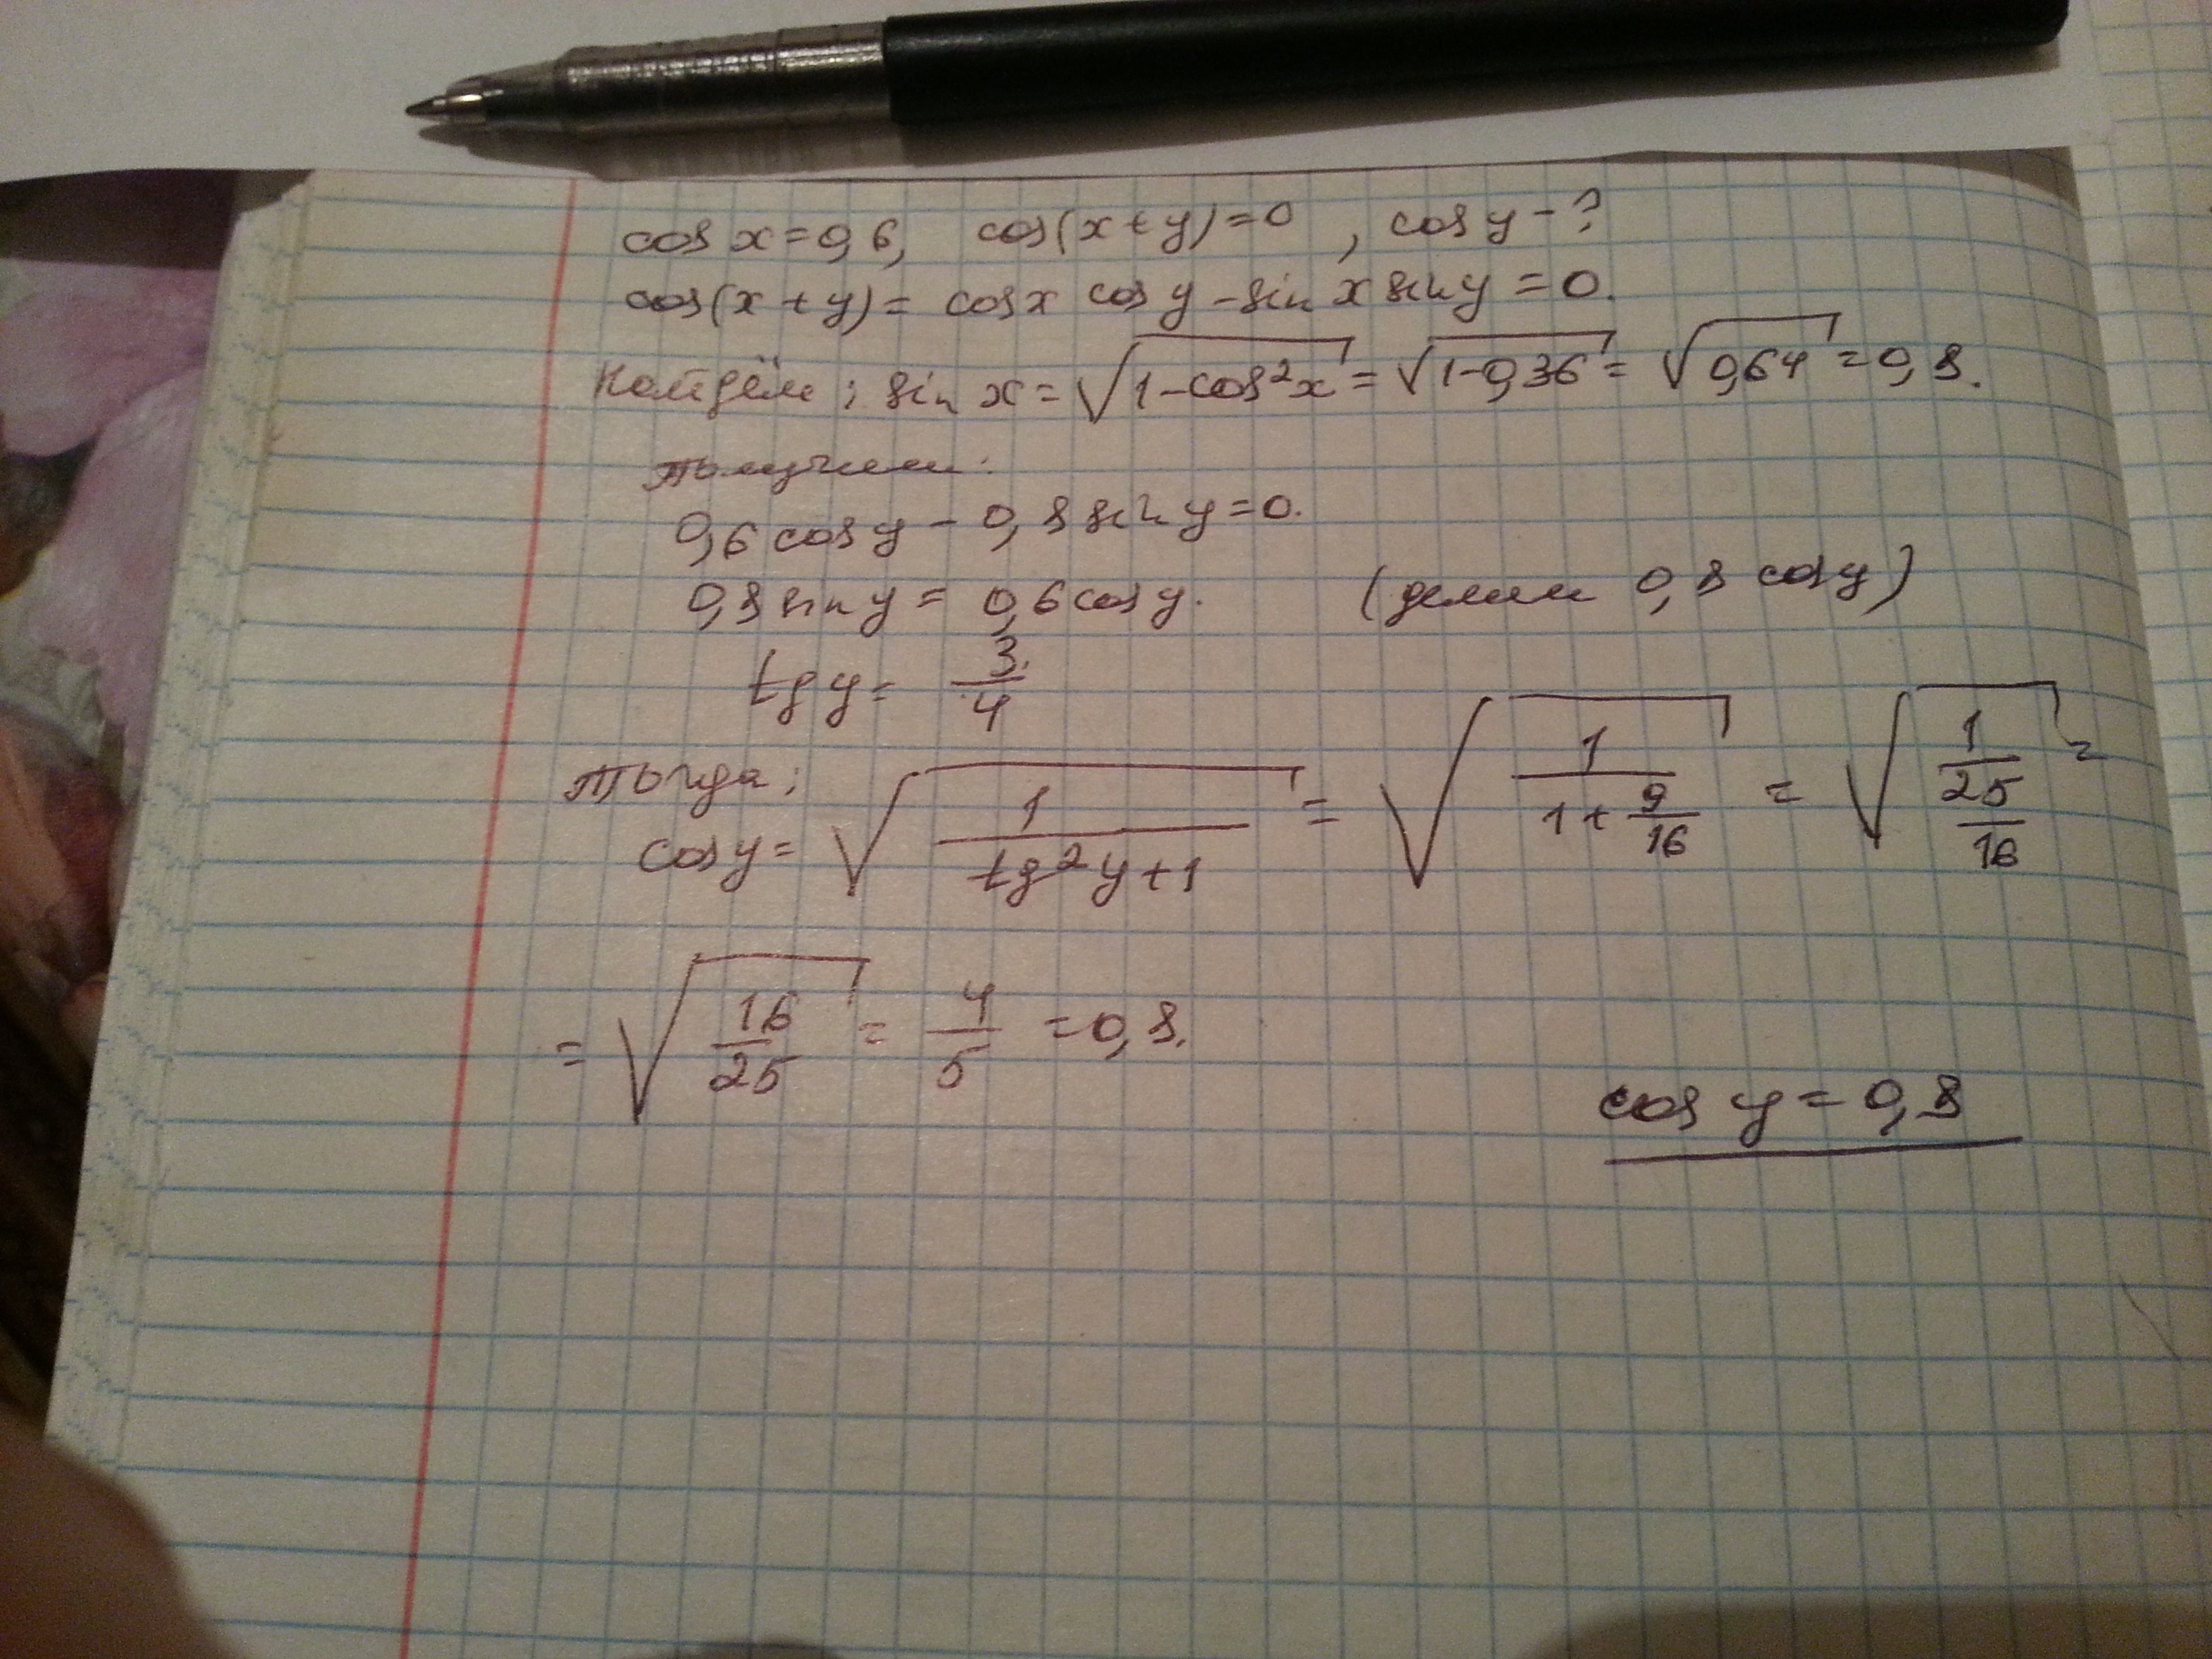 cos x = 0,6, cos(x+y)=0, cos y - ?
cos(x+y) = cos x cos y - sin x sin y = 0.
Найдём; sin x = √(1-cos²x) = √(1-0,36) = √(0,64) = 0,8.
Получим:
0,6 cos y - 0,8 sin y = 0.
0,8 sin y = 0,6 cos y. (делим 0,8 cos y)
tg y = 3/4
Тогда;
cos y = √(1/(tg²y+1)) = √(1/(1+9/16)) = √(1/(25/16)) =
= √(16/25) = 4/5 = 0,8.
cos y = 0,8